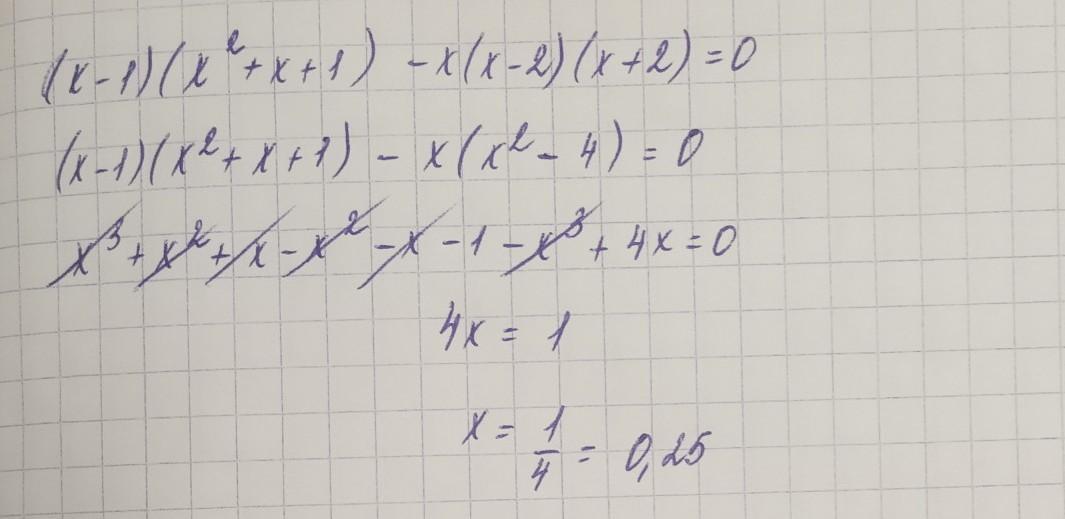 (x-1)(x²+x+1) -x(x-2)(x+2)=0
(x-1)(x²+x+1) - x(x²-4)=0
x³+x²+x-x²-x-1-x³+4x=0
4x=1
x=1/4=0,25